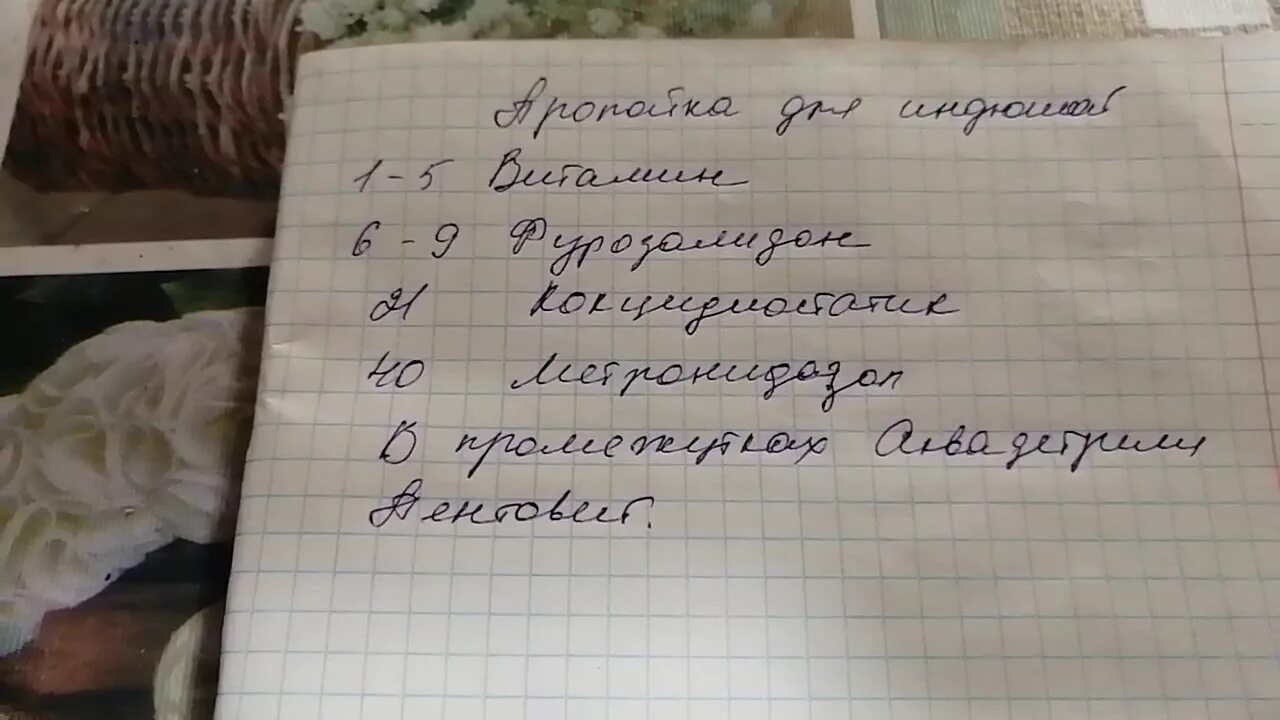 Пропойка для индюшат
1-5 Витамин
6-9 Фурозалидон
21 Кокцидиостатик
40 Метронидазол
В промежутках Аквадетрим
Пентовит.